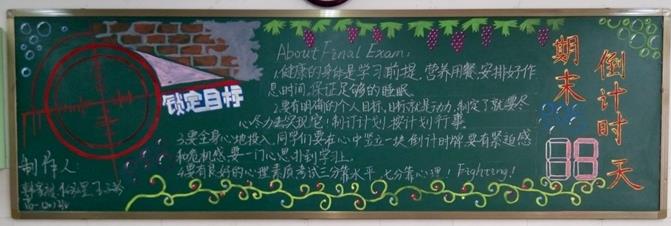 About Final Exam:
1.健康的身体是学习前提,营养用餐,安排好作
息时间,保证足够的睡眠。
2.要有明确的个人目标,目标就是动力,制定了就要尽
心尽力去实现它!制订计划,按计划行事。
3.要全身心地投入,同学们要在心中竖立一块倒计时牌,要有紧迫感
和危机感,要一门心思扑到学习上。
4.要有良好的心理素质,考试三分靠水平,七分靠心理!Fighting!
锁定目标
期末
倒计时
天
制作人